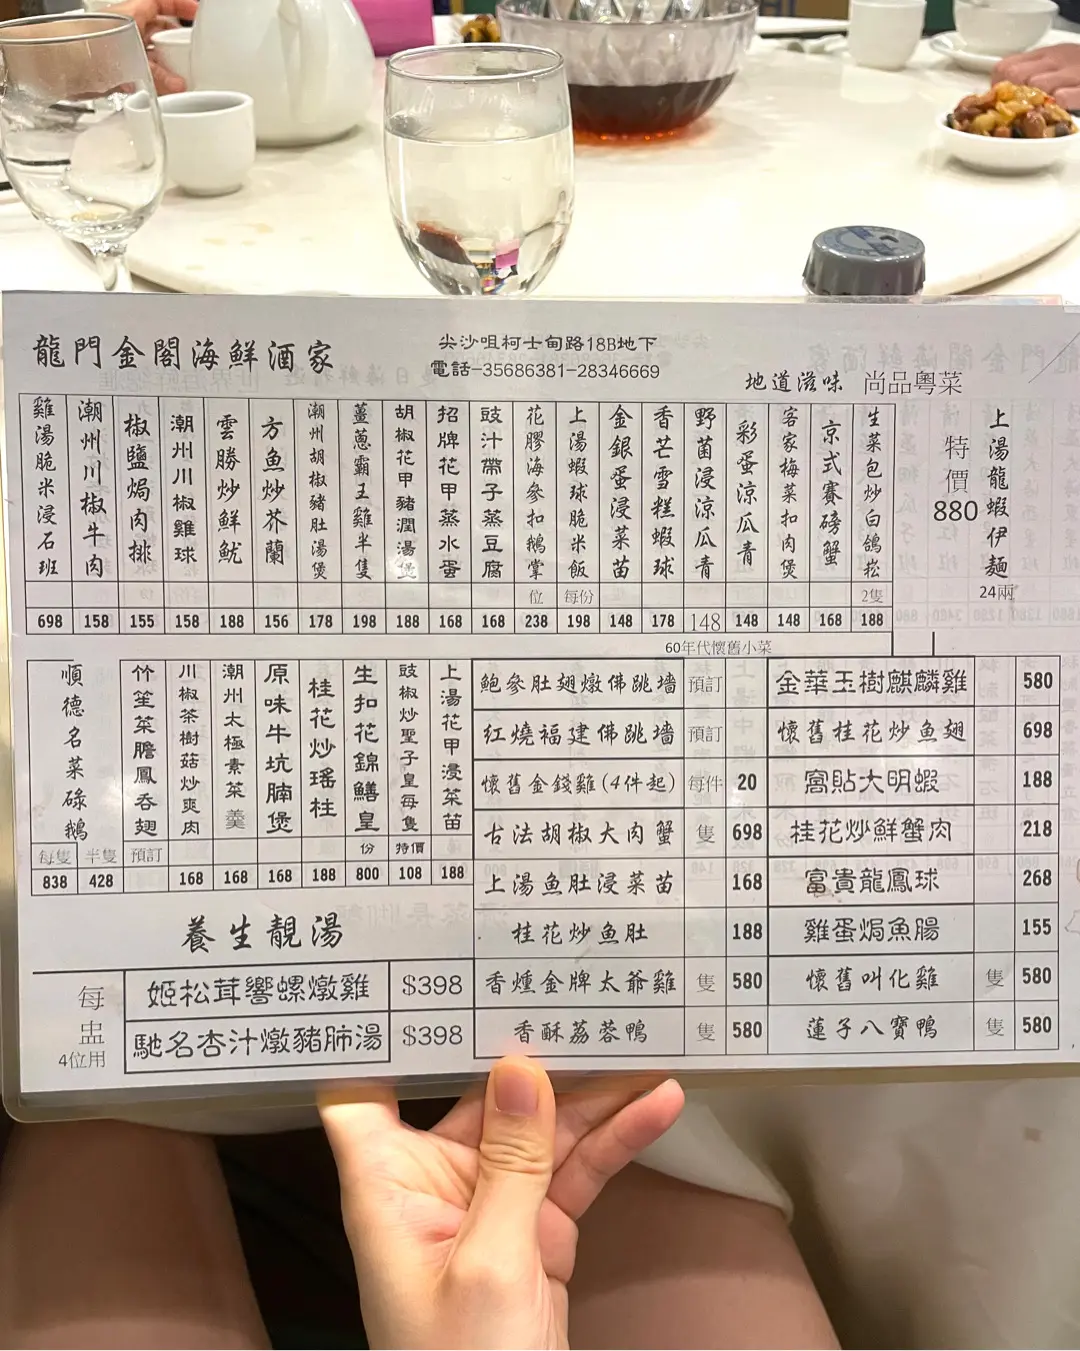 龍門金閣海鮮酒家
尖沙咀柯士甸路18B地下
電話-35686381-28346669
地道滋味 尚品粵菜
上湯龍蝦伊麵 24兩
特價 880
生菜包炒白鴿崧 2隻 188
京式賽磅蟹 168
客家梅菜扣肉煲 148
彩蛋涼瓜青 148
野菌浸涼瓜青 148
香芒雪糕蝦球 178
金銀蛋浸菜苗 148
上湯蝦球脆米飯 每份 198
花膠海參扣鵝掌 位 238
豉汁帶子蒸豆腐 168
招牌花甲蒸水蛋 168
胡椒花甲豬潤湯煲 188
薑蔥霸王雞半隻 198
潮州胡椒豬肚湯煲 178
方魚炒芥蘭 156
雲勝炒鮮魷 188
潮州川椒雞球 158
椒鹽焗肉排 155
潮州川椒牛肉 158
雞湯脆米浸石班 698
60年代懷舊小菜
上湯花甲浸菜苗 188
豉椒炒聖子皇每隻 特價 108
生扣花錦鱔皇 份 800
桂花炒瑤柱 188
原味牛坑腩煲 168
潮州太極素菜羹 168
川椒茶樹菇炒爽肉 168
竹笙菜膽鳳吞翅 預訂
順德名菜碌鵝
每隻 半隻
838 428
鮑參肚翅燉佛跳墻 預訂
紅燒福建佛跳墻 預訂
懷舊金錢雞(4件起) 每件 20
古法胡椒大肉蟹 隻 698
上湯魚肚浸菜苗 168
桂花炒魚肚 188
香燻金牌太爺雞 隻 580
香酥荔蓉鴨 隻 580
金華玉樹麒麟雞 580
懷舊桂花炒魚翅 698
窩貼大明蝦 188
桂花炒鮮蟹肉 218
富貴龍鳳球 268
雞蛋焗魚腸 155
懷舊叫化雞 隻 580
蓮子八寶鴨 隻 580
養生靚湯
每盅 4位用
姬松茸響螺燉雞 $398
馳名杏汁燉豬肺湯 $398